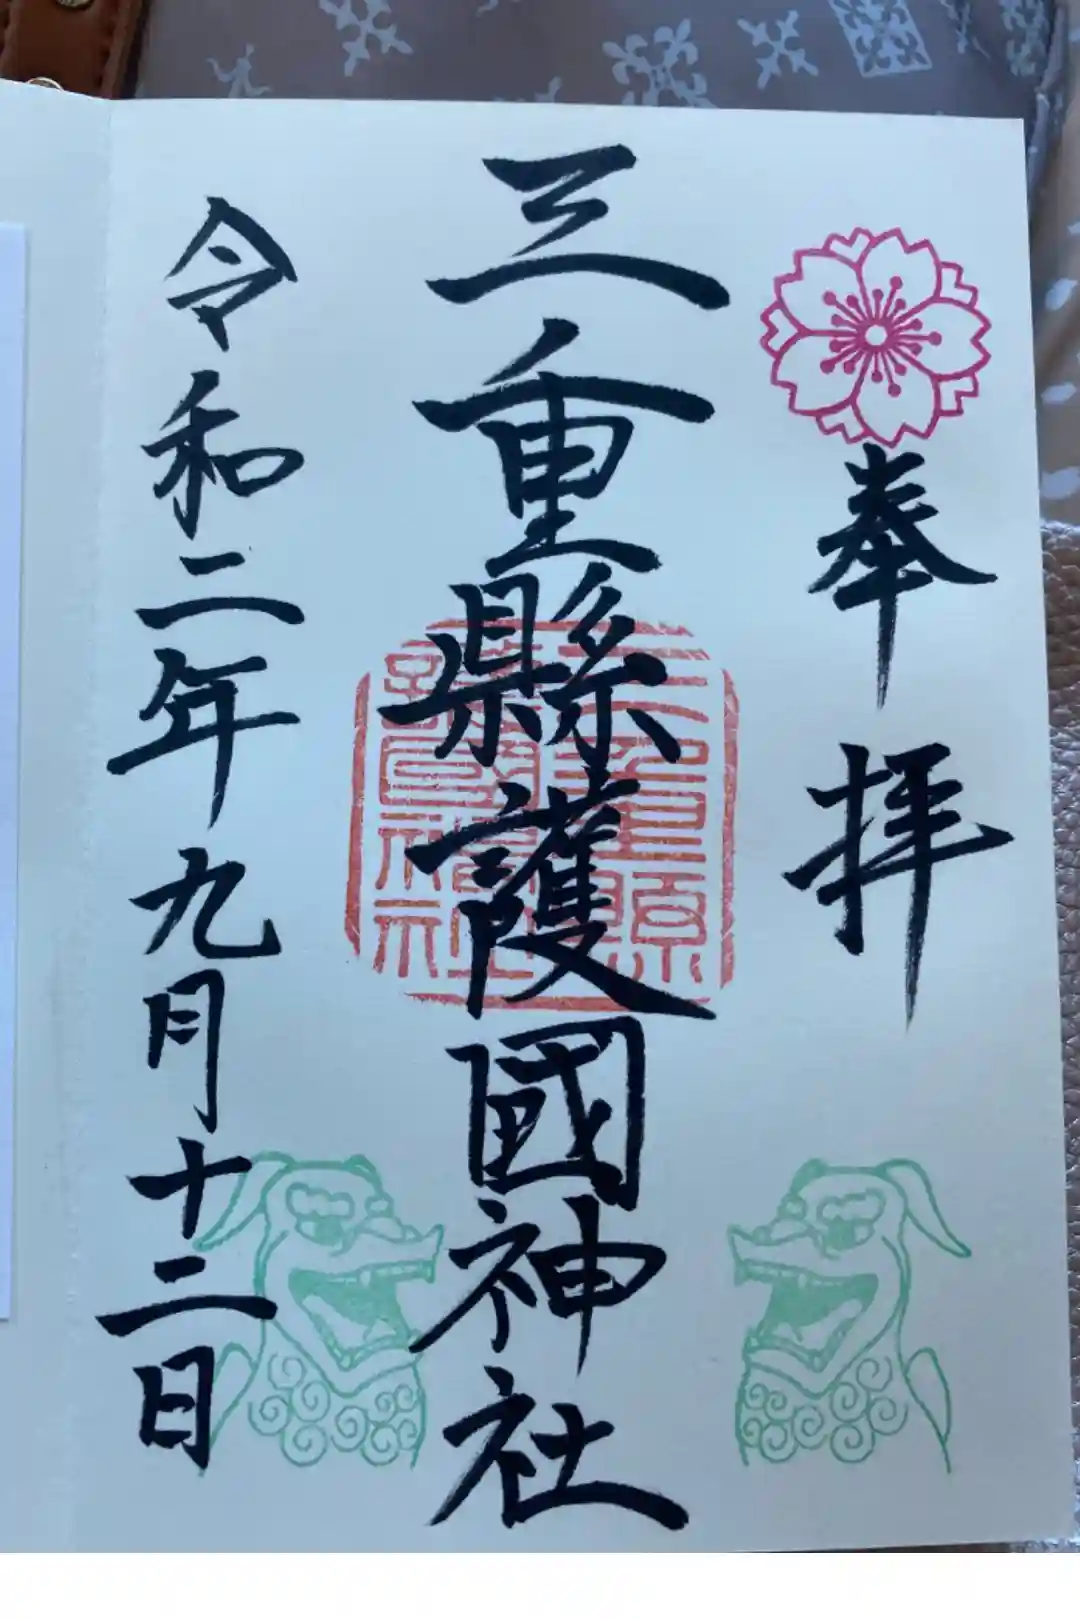 奉拝
三重縣護國神社
三重縣護國神社
令和二年九月十二日